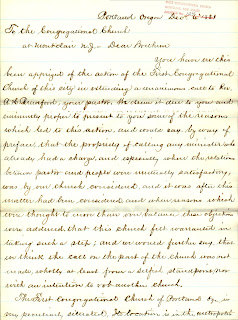 Portland Oregon Dec 6 1881
To the Congregational Church
at Montclair N.J. Dear Brethren
You have ere this
been apprized of the action of the First Congregational
Church of this city in extending a unanimous call to Rev.
your pastor. We deem it due to you and
eminently proper to present to you some of the reasons
which led to this action, and would say by way of
preface, that the propriety of calling any minister who
already had a charge, and especially where the relation
between pastor and people were mutually satisfactory,
was by our church considered, and it was after this
matter had been considered and when reasons which
were thought to more than out balance these objections
were adduced, that this church felt warranted in
taking such a step; and we would further say, that
we think the call on the part of the church was not
made wholly at least from a selfish standpoint, nor
with an intention to rob another church.
The First Congregational Church of Portland Ogn. is
in my peculiarly situated. Its location is in the metropolis